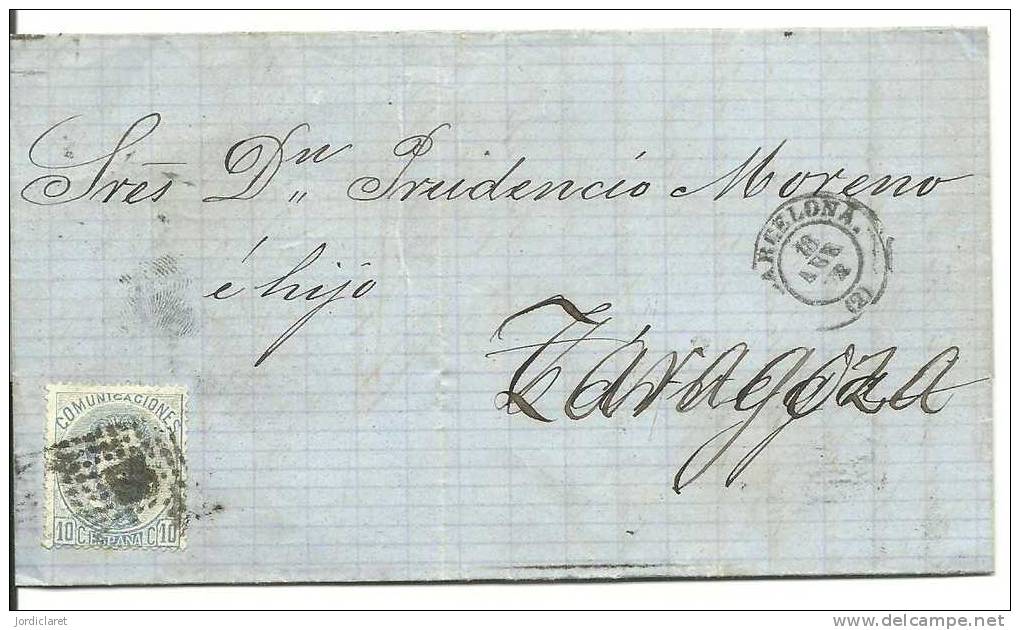 Sres Dn Prudencio Moreno
é hijo
Zaragoza
BARCELONA.
18
(2)
COMUNICACIONES
10 C. ESPAÑA. C 10
jordiclaret
www.delcampe.net